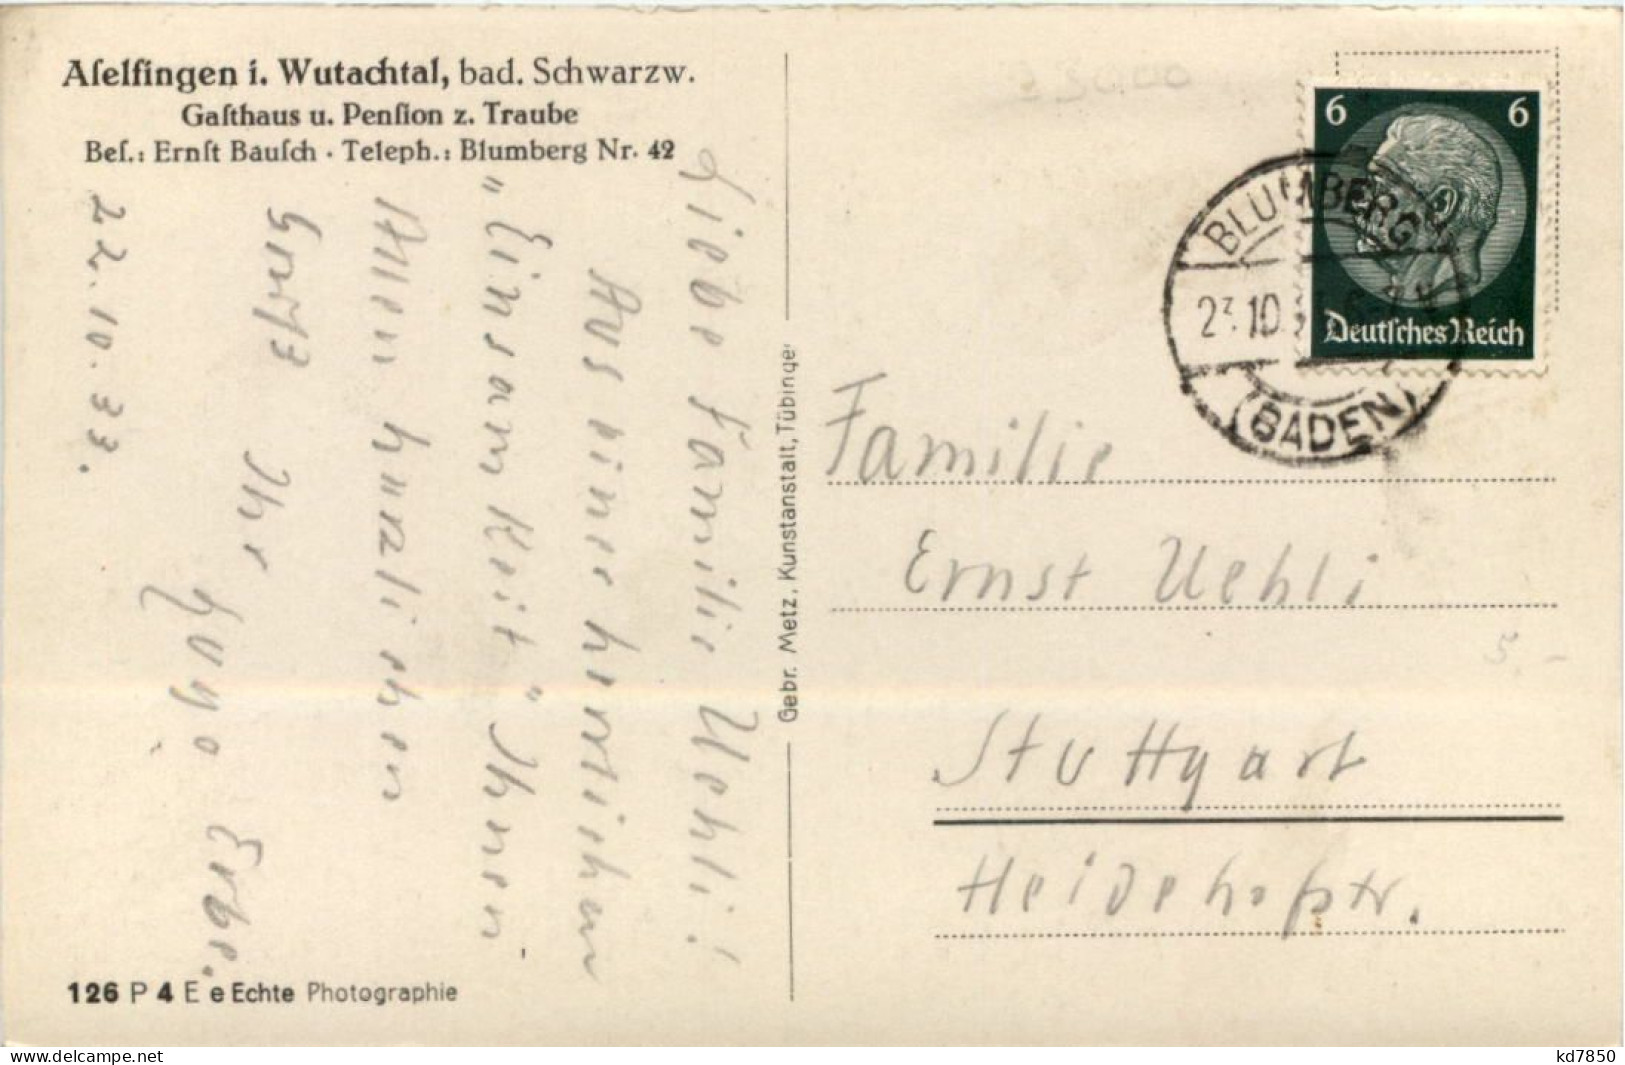 Aſelfingen i. Wutachtal, bad. Schwarzw.
Gaſthaus u. Penſion z. Traube
Beſ.: Ernſt Bauſch · Teleph.: Blumberg Nr. 42
Liebe Familie Uehli!
Aus einer herrlichen
"Einsamkeit" Ihnen
Allen herzlichen
Gruß Ihr
Hugo Erbe.
22.10.33.
126 P 4 E e Echte Photographie
Gebr. Metz, Kunstanstalt, Tübingen
6 6
Deutſches Reich
BLUMBERG
23.10.
(BADEN)
Familie
Ernst Uehli
Stuttgart
Heidehofstr.
3.-
www.delcampe.net
kd7850